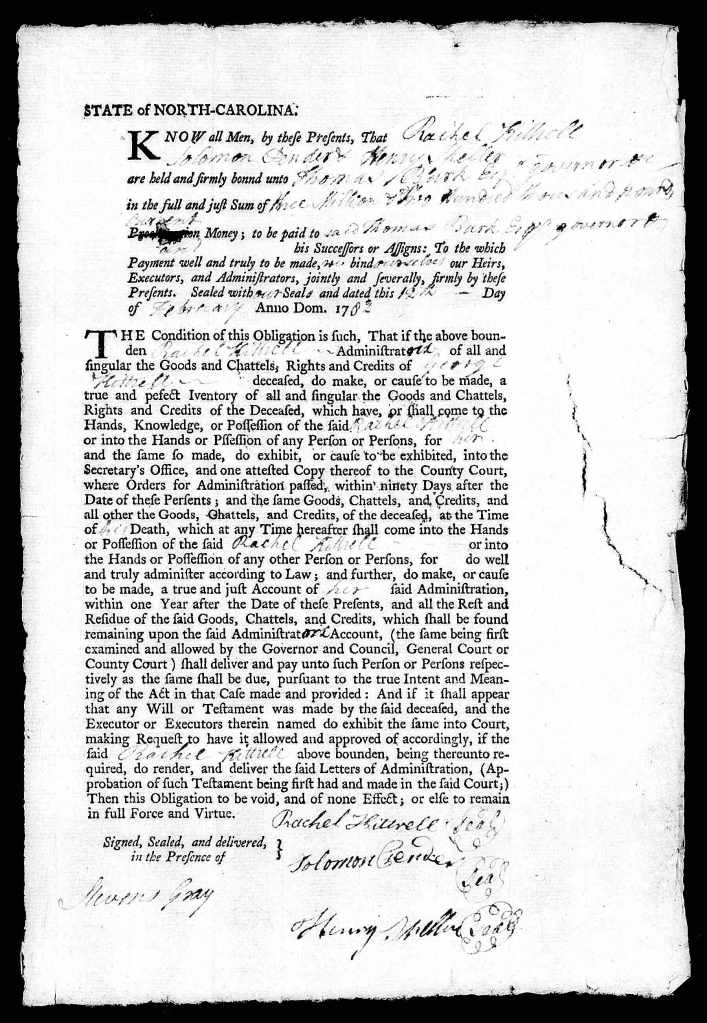 STATE of NORTH-CAROLINA.
KNOW all Men, by these Presents, That Rachel Kittrell
Solomon Henry
are held and firmly bound unto Thomas Burk Esqr Governor &c
in the full and just Sum of three Million & two Hundred thousand pounds
Current
Money; to be paid to said Thomas Burk Esqr governor
his Successors or Assigns: To the which
Payment well and truly to be made, we bind ourselves our Heirs,
Executors, and Administrators, jointly and severally, firmly by these
Presents. Sealed with our Seals and dated this 12th Day
of February Anno Dom. 1782
THE Condition of this Obligation is such, That if the above boun-
den Rachel Kittrell Administrators of all and
singular the Goods and Chattels, Rights and Credits of George
Kittrell deceased, do make, or cause to be made, a
true and pefect Iventory of all and singular the Goods and Chattels,
Rights and Credits of the Deceased, which have, or shall come to the
Hands, Knowledge, or Possession of the said Rachel Kittrell
or into the Hands or Pssession of any Person or Persons, for her
and the same so made, do exhibit, or cause to be exhibited, into the
Secretary's Office, and one attested Copy thereof to the County Court,
where Orders for Administration passed, within ninety Days after the
Date of these Persents; and the same Goods, Chattels, and Credits, and
all other the Goods, Chattels, and Credits, of the deceased, at the Time
of his Death, which at any Time hereafter shall come into the Hands
or Possession of the said Rachel Kittrell or into
the Hands or Possession of any other Person or Persons, for do well
and truly administer according to Law; and further, do make, or cause
to be made, a true and just Account of her said Administration,
within one Year after the Date of these Presents, and all the Rest and
Residue of the said Goods, Chattels, and Credits, which shall be found
remaining upon the said Administrators Account, (the same being first
examined and allowed by the Governor and Council, General Court or
County Court) shall deliver and pay unto such Person or Persons respec-
tively as the same shall be due, pursuant to the true Intent and Mean-
ing of the Act in that Case made and provided: And if it shall appear
that any Will or Testament was made by the said deceased, and the
Executor or Executors therein named do exhibit the same into Court,
making Request to have it allowed and approved of accordingly, if the
said Rachel Kittrell above bounden, being thereunto re-
quired, do render, and deliver the said Letters of Administration, (Ap-
probation of such Testament being first had and made in the said Court;)
Then this Obligation to be void, and of none Effect; or else to remain
in full Force and Virtue.
Rachel Kittrell Seal
Signed, Sealed, and delivered,
in the Presence of
Solomon Seal
Stevens Gray
Henry Seal